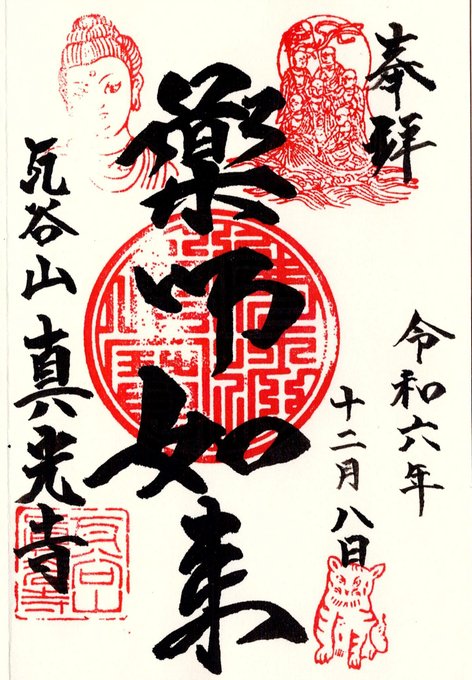 奉拝
令和六年
十二月八日
薬師如来
瓦谷山真光寺